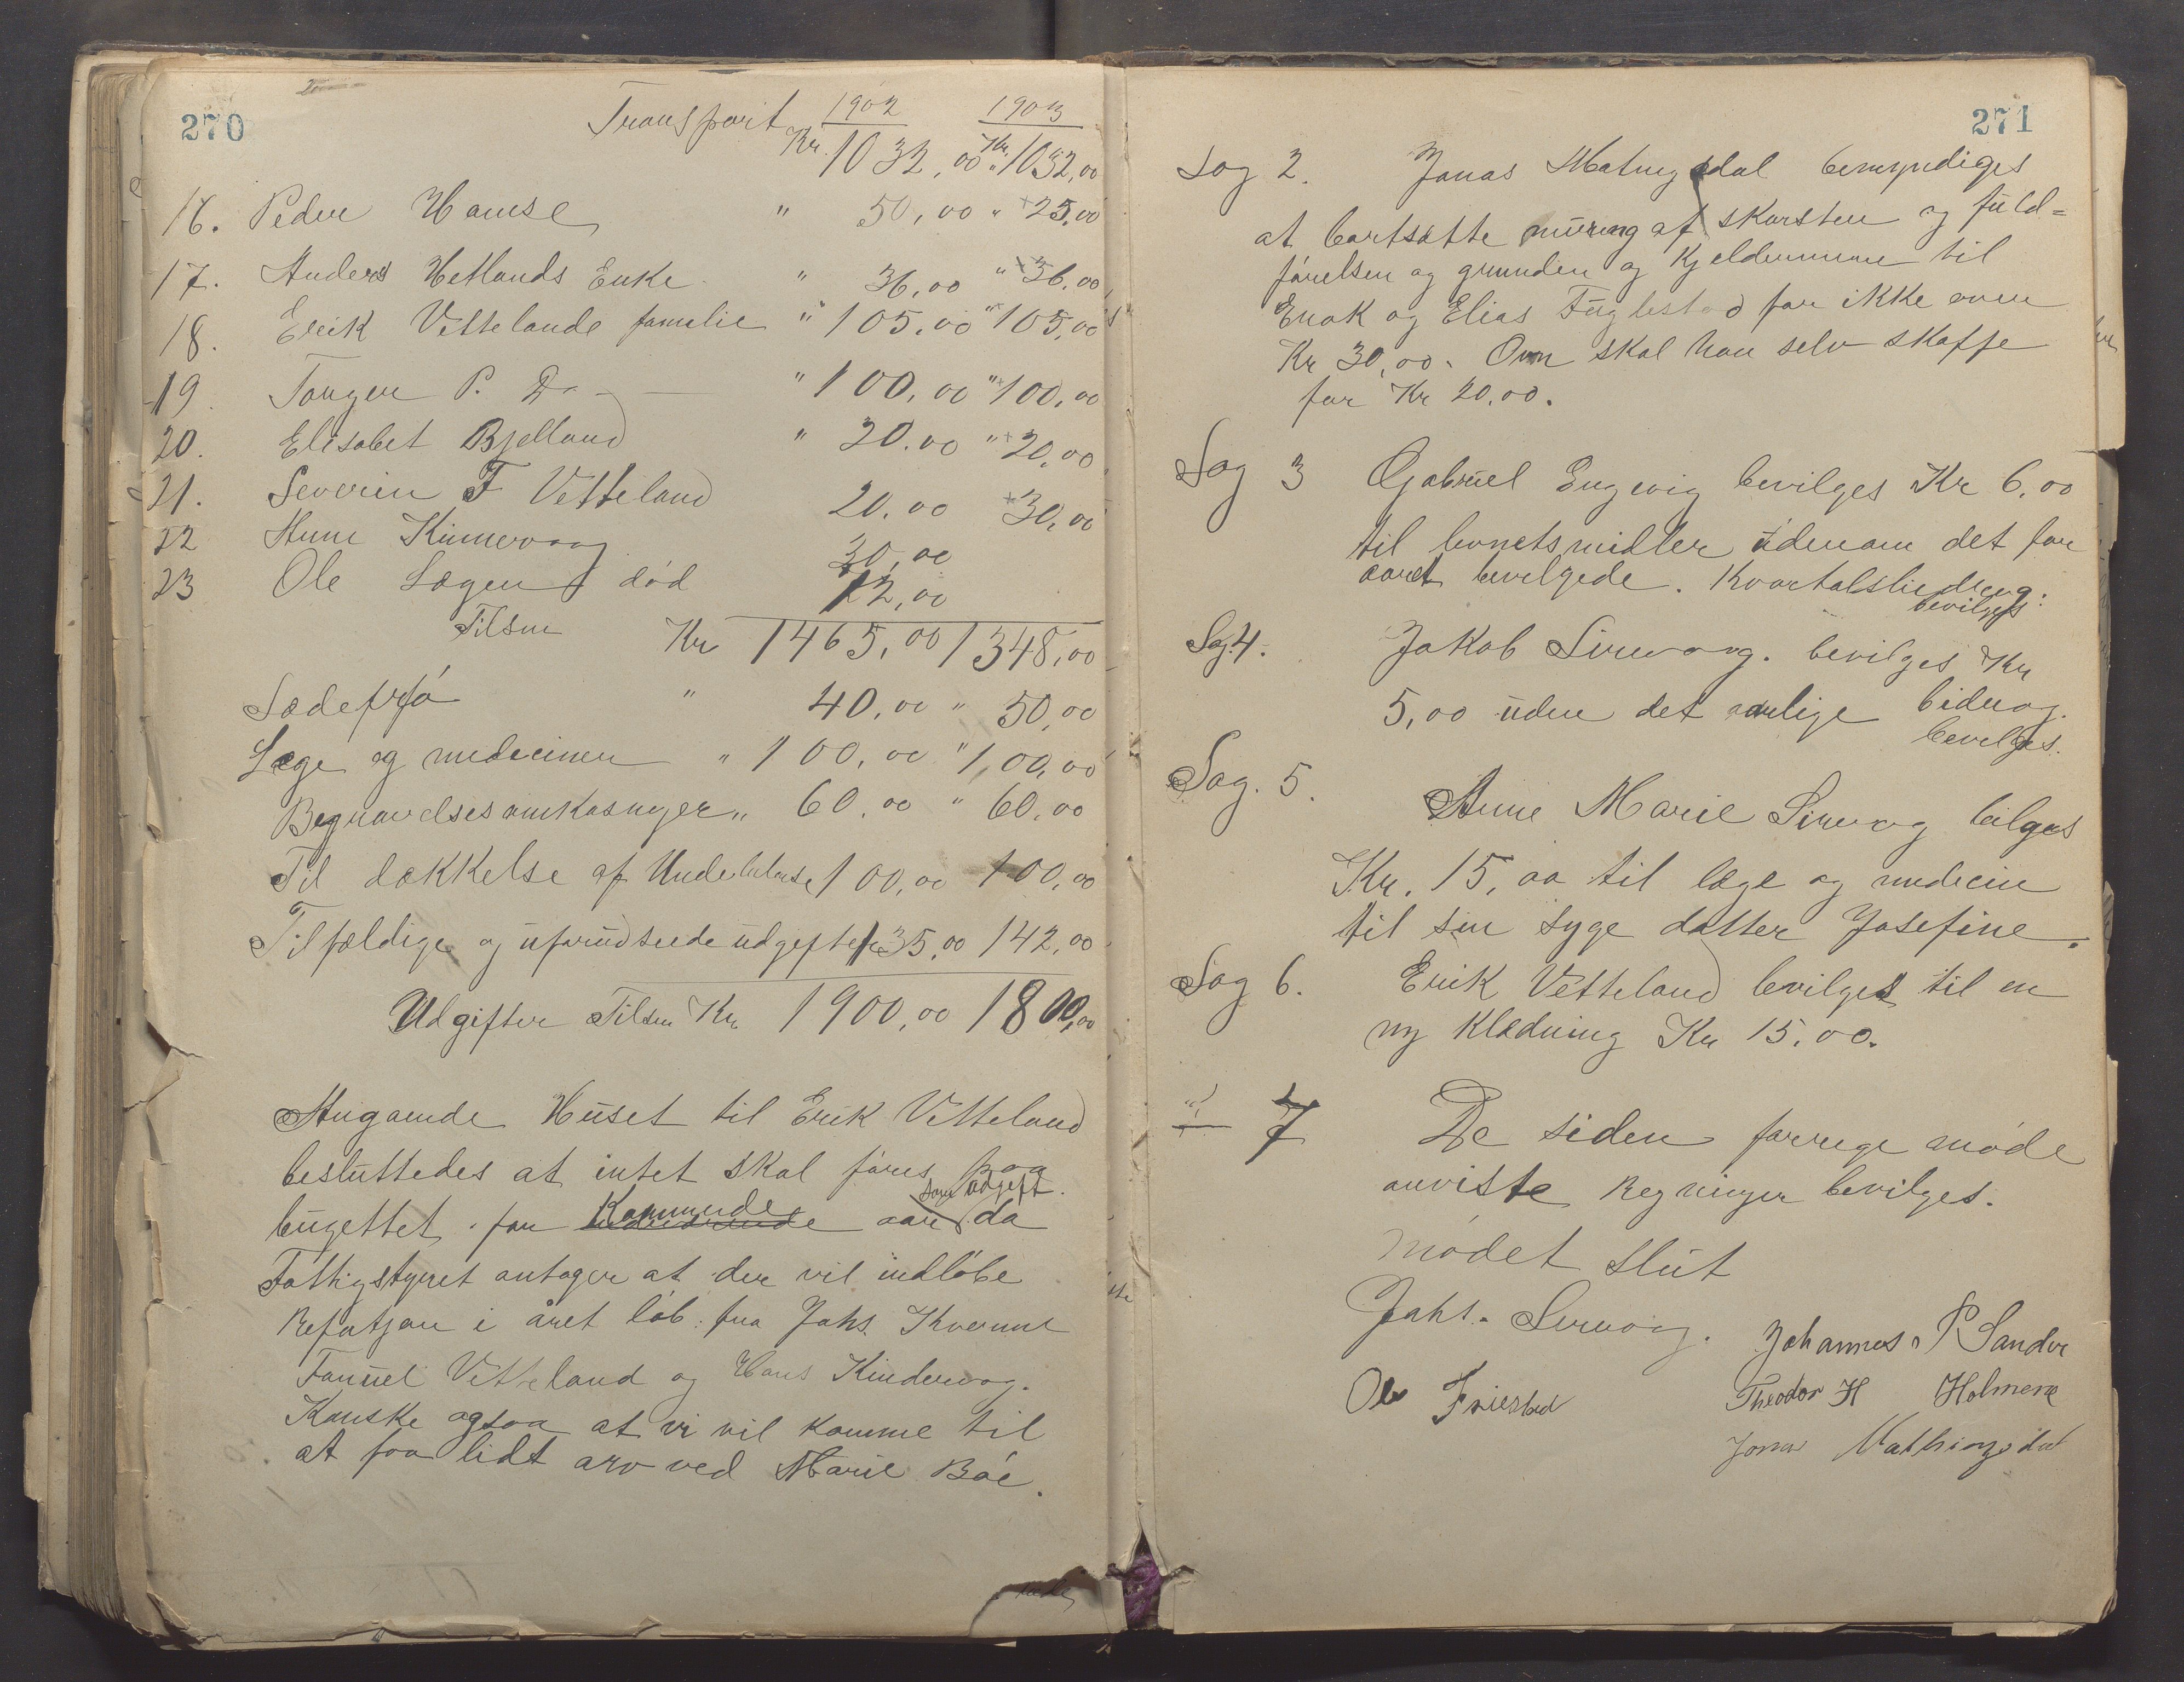 270
Transport 1902 1903
Kr. 1032,00 Kr. 1032,00
16. Peder Hamse " 50,00 " +25,00
17. Anders Hetlands Enke " 36,00 " +36,00
18. Erik Vettelands familie " 105,00 " 105,00
19. Tonger P. D. — " 100,00 " +100,00
20. Elisabet Bjelland " 20.00 " +20,00
21. Severin F Vetteland 20.00 +30,00
22 Anne Kinnervaag 30,00
23 Ole Lægen død 12,00
Tilsm Kr 1465,00 1348,00
Sædefrø " 40,00 " 50,00
Læge og medeciner " 100,00 " 100,00
Begravelsesomkosnger " 60.00 " 60.00
Til dækkelse af Underbalanse 100,00 100,00
Tilfældige og uforudseede udgifter 135,00 142,00
Udgifter Tilsm Kr 1900,00 1800,00
Angaaende Huset til Erik Vetteland
besluttedes at intet skal føres paa
bugettet for Kommende aar som udgift. da
Fattigstyret antager at der vil indløbe
Refutjon i året løb: fra Johs. Kvernne
Tanuel Vetteland og Hans Kindervag.
Kanske ogsaa at vi vil komme til
at faa lidt arv ved Marie Bøe.
271
Sag 2. Jonas Matnygsdal bemyndiges
at bortsætte muring af skorsten og fuld=
førelsen og grunden og Kjeldermure til
Enok og Elias Fuglestad for ikke over
Kr 30,00. Ovn skal han selv skaffe
for Kr 20.00.
Sag 3 Gabriel Engevig bevilges Kr 6,00
til levnetsmidler udenom det for
aaret bevilgede. Kvartalsbiedrag:
bevilges
Sag.4. Jakob Sirevaag. bevilges Kr
5,00 uden det aarlige bidrag.
bevilges.
Sag. 5. Anne Marie Sirevag bilges
Kr. 15,00 til læge og medecin
til sin syge datter Josefine.
Sag 6. Erik Vetteland bevilges til en
ny Klædning Kr 15.00.
" 7 De siden forrige møde
anviste Regninger bevilges.
Mødet slut
Johs. Sirevaag. Johannes P Sandve
Ole Friestad Theodor H Holmene
Jonas Mathingsdal